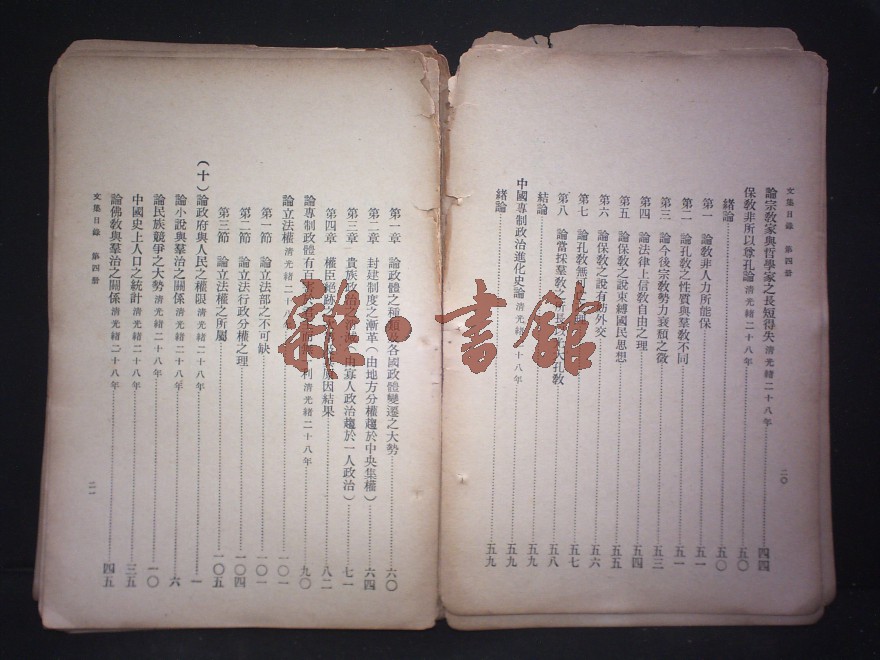 文集目錄 第四册 二〇
論宗敎家與哲學家之長短得失 清光緒二十八年 四四
保敎非所以尊孔論 清光緒二十八年 五〇
緒論 五〇
第一 論敎非人力所能保 五一
第二 論孔敎之性質與羣敎不同 五一
第三 論今後宗敎勢力衰頹之徵 五三
第四 論法律上信敎自由之理 五四
第五 論保敎之說束縛國民思想 五五
第六 論保敎之說有妨外交 五六
第七 論孔敎無可 五七
第八 論當採羣敎之 大孔敎 五八
結論 五九
中國專制政治進化史論 清光緒二十八年 五九
緒論 五九
第一章 論政體之種類及各國政體變遷之大勢 六〇
第二章 封建制度之漸革(由地方分權趨於中央集權) 六四
第三章 貴族政治之 由寡人政治趨於一人政治) 七一
第四章 權臣絕跡之 原因結果 八二
論專制政體有百害 利 清光緒二十八年 九〇
論立法權 清光緒二十八年 一〇一
第一節 論立法部之不可缺 一〇一
第二節 論立法行政分權之理 一〇四
第三節 論立法權之所屬 一〇五
(十)論政府與人民之權限 清光緒二十八年 一
論小說與羣治之關係 清光緒二十八年 六
論民族競爭之大勢 清光緒二十八年 一〇
中國史上人口之統計 清光緒二十八年 三五
論佛敎與羣治之關係 清光緒二十八年 四五
文集目錄 第四册 二一
書館